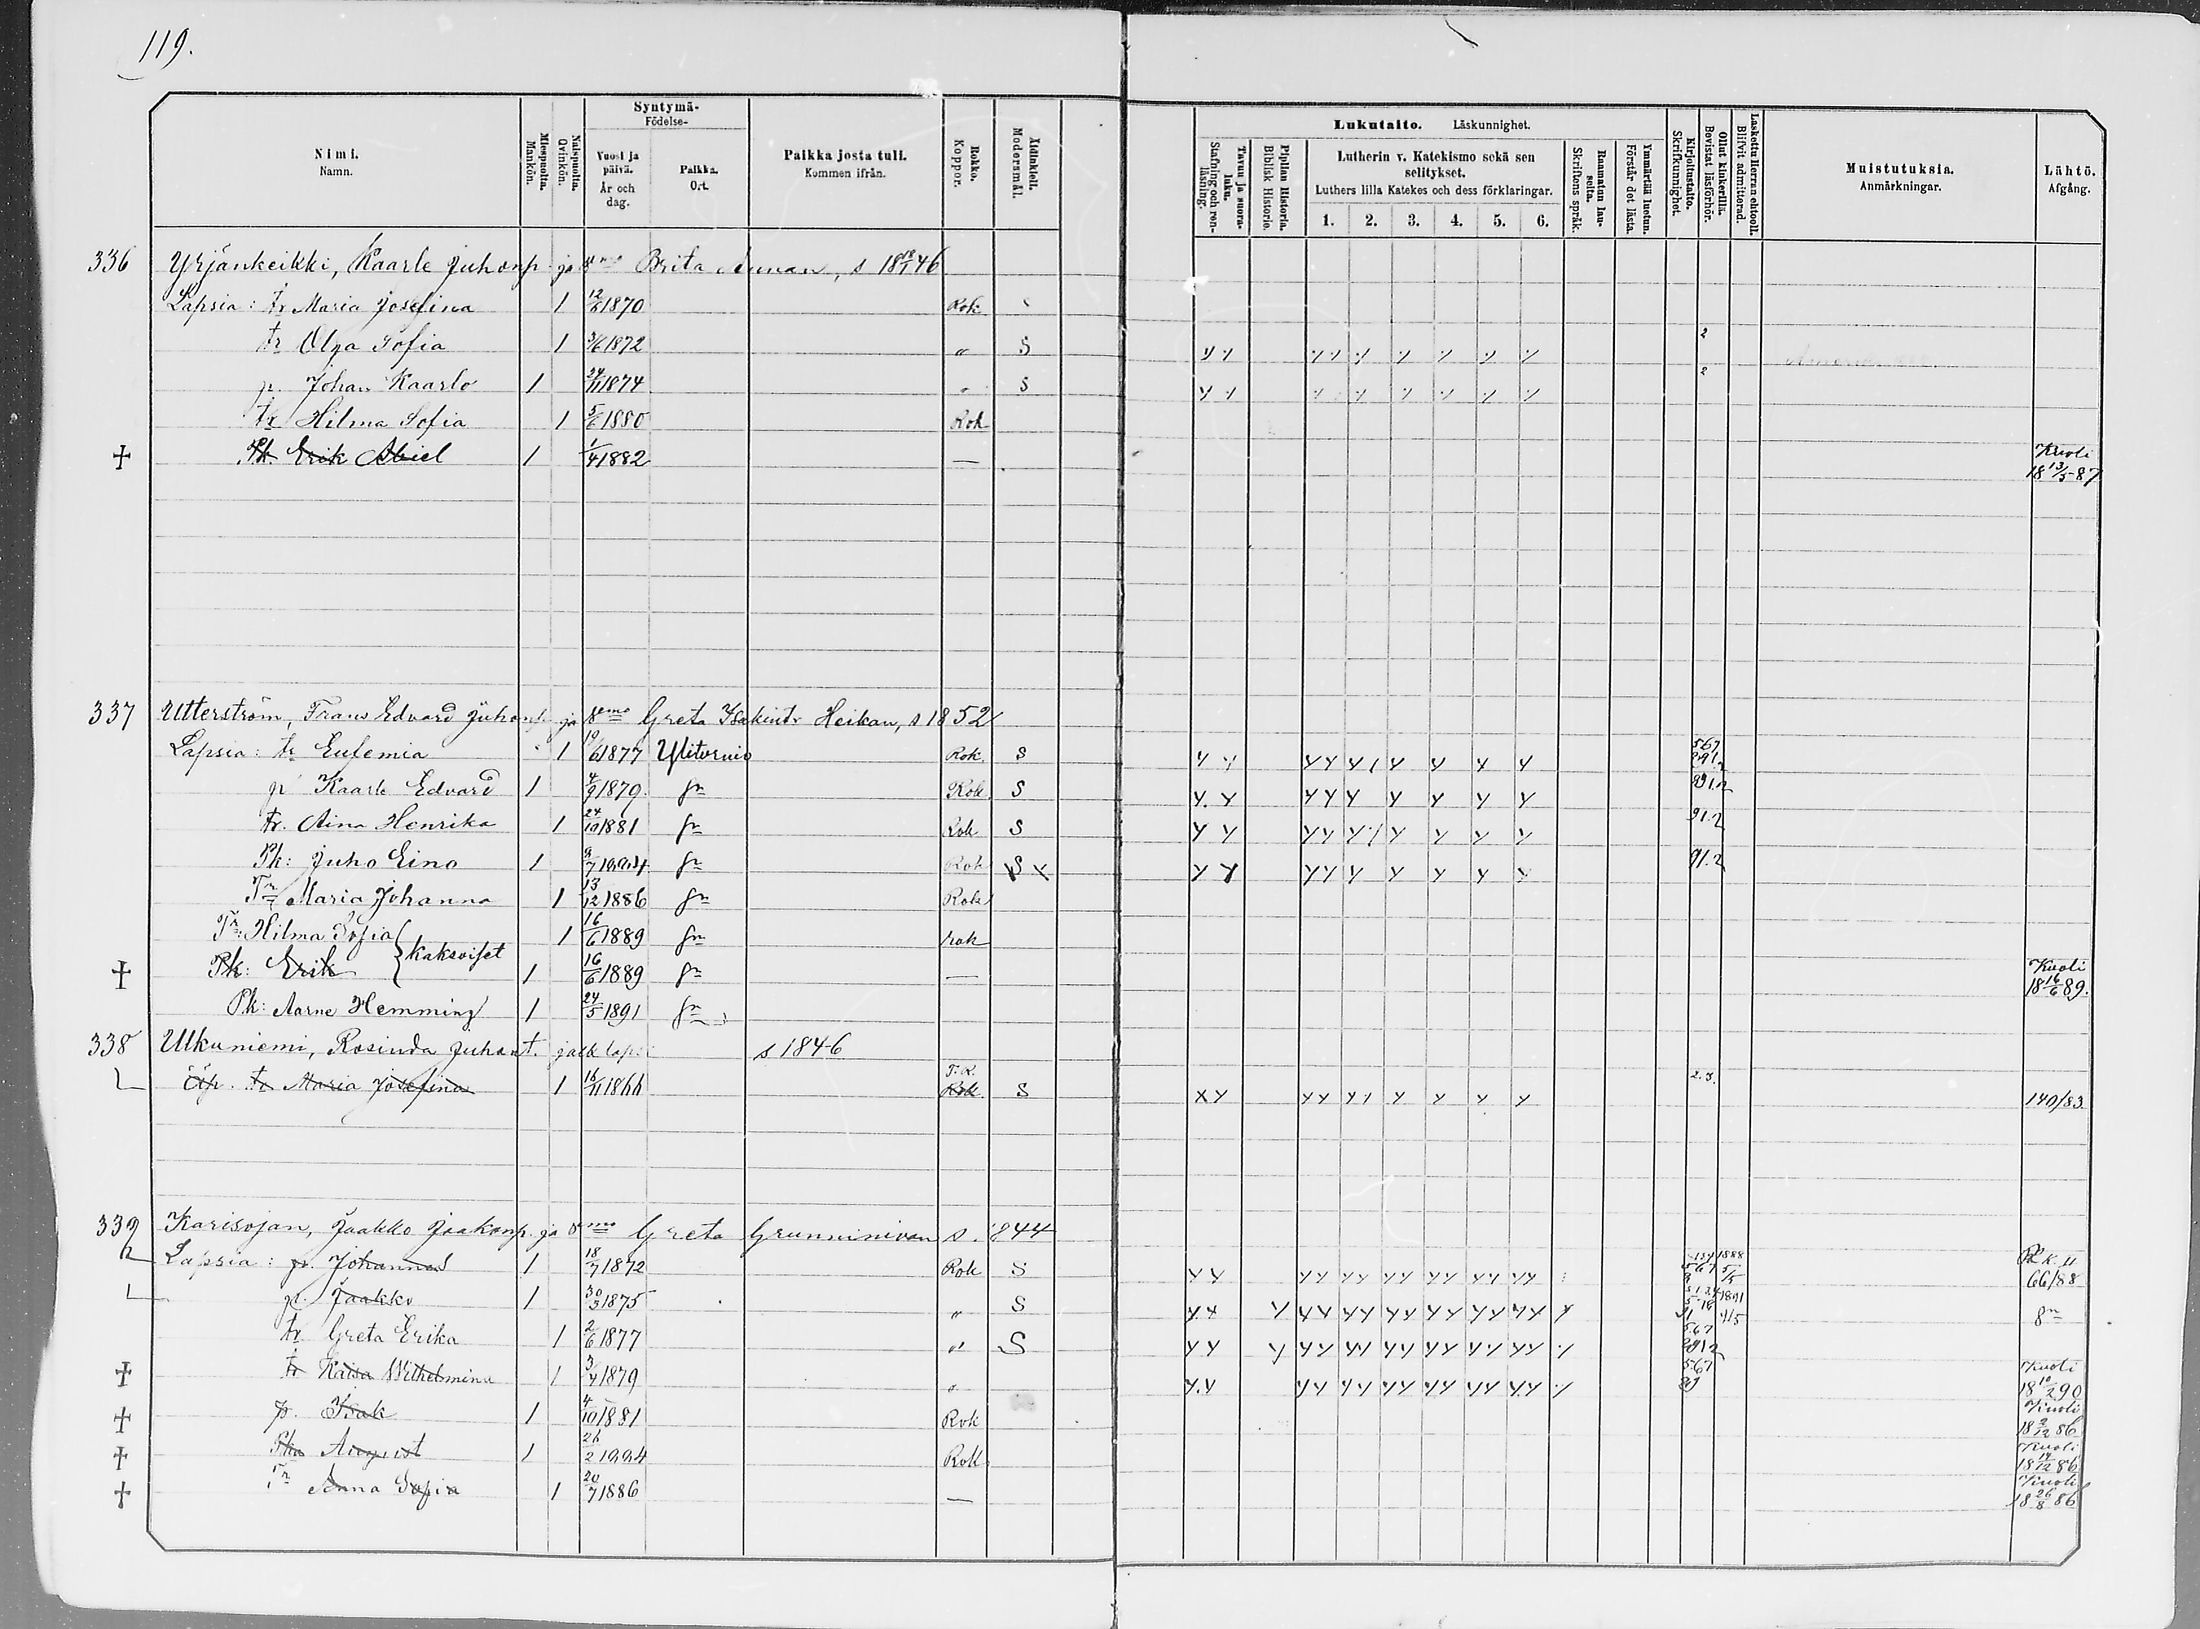 119.
Nimi.
Namn.
Miespuolta.
Mankön.
Naispuolta.
Qvinkön.
Syntymä-
Födelse-
Vuosi ja päivä.
År och dag.
Paikka.
Ort.
Paikka josta tuli.
Kommen ifrån.
Rokko.
Koppor.
Äidinkieli.
Modersmål.
Tavuu ja suora-luku.
Stafning och ren-läsning.
Piplian Historia.
Biblisk Historie.
Lukutaito. Läskunnighet.
Lutherin v. Katekismo sekä sen selitykset.
Luthers lilla Katekes och dess förklaringar.
1. 2. 3. 4. 5. 6.
Raamatun lau-seita.
Skriftens språk.
Ymmärtää luetun.
Förstår det lästa.
Kirjoitustaito.
Skrifkunnighet.
Ollut kinkerillä.
Bevistat läsförhör.
Laskettu Herran ehtooll.
Blifvit admitterad.
Muistutuksia.
Anmärkningar.
Lähtö.
Afgång.
336 Yrjänkeikki, Kaarle Juhonp. ja vmo Brita Annan, s 18 18/1 46
Lapsia: tr Maria Josefina 1 12/6 1870 Rok
tr Olga Sofia 1 3/6 1872 " S y y y y y y y y y y 2
p. Johan Kaarlo 1 24/11 1874 " S y y y y y y y y y 2
tr Hilma Sofia 1 5/6 1880 Rok
+ Pk. Erik Abiel 1 1/4 1882 — Kuoli 18 13/5 87
337 Utterström, Frans Edvard Juhonp. ja vmo Greta Isakintr Heikan, s 1852
Lapsia: tr Eufemia 1 19/6 1877 Ylitornio Rok S y y y y y 1 y y y y 567 891.2
p Kaarle Edvard 1 4/9 1879 sn Rok S y. y y y y y y y y 891.2
tr. Aina Henrika 1 24/10 1881 sn Rok S y y y y y 1 y y y y 91.2
Pk: Juho Eino 1 9/7 1884 sn Rok S y y y y y y y y y 91.2
Tr Maria Johanna 1 13/12 1886 sn Rok
Tr: Hilma Sofia } kaksoiset 1 16/6 1889 sn rok
+ Pk: Erik 1 16/6 1889 sn — Kuoli 18 16/6 89.
Pk: Aarne Hemming 1 24/5 1891 sn
338 Ulkuniemi, Rosinda Juhont. ja lapsi s 1846
Äp. tr Maria Josefina 1 16/11 1866 T.R. Rok S x y y y y 1 y y y y 2.3. 140/83
339 Karisojan, Jaakko Jaakonp. ja vmo Greta Grunninivan s. 1844
Lapsia: p. Johannes 1 18/7 1872 Rok S y y y y y y y y y y y y y y 567 1888 5/5 RK II 66/88
p. Jaakko 1 30/3 1875 " S y y y y y y y y y y y y y y y y 1891 sn
tr Greta Erika 1 2/6 1877 " S y y y y y y y y y y y y y y y y 567 8912
+ tr Kaisa Wilhelmina 1 3/4 1879 " y y y y y y y y y y y y y y y 567 89 Kuoli 18 10/2 90
+ p. Isak 1 4/10 1881 Rok Kuoli 18 2/12 86
+ Pka August 1 26/2 1884 Rok Kuoli 18 14/12 86
+ Tr Anna Sofia 1 20/7 1886 — Kuoli 18 26/8 86